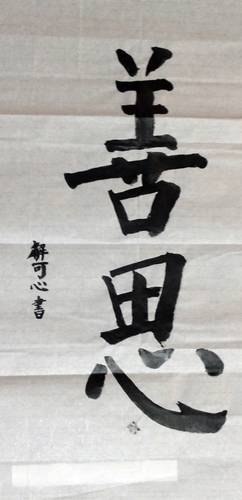 善思
解可心書